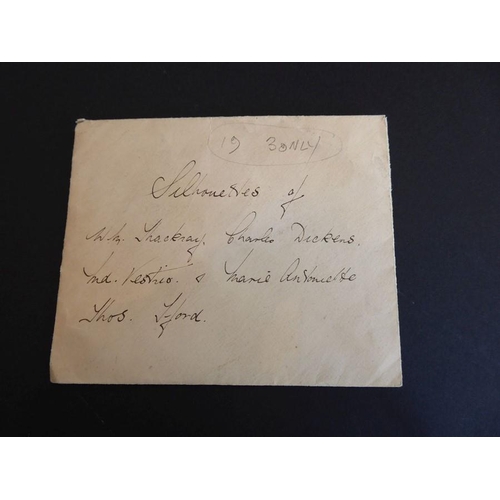 19 3 ONLY
Silhouettes of
Wm. Thackray. Charles Dickens.
Md. Vestris. & Marie Antoinette
Thos.